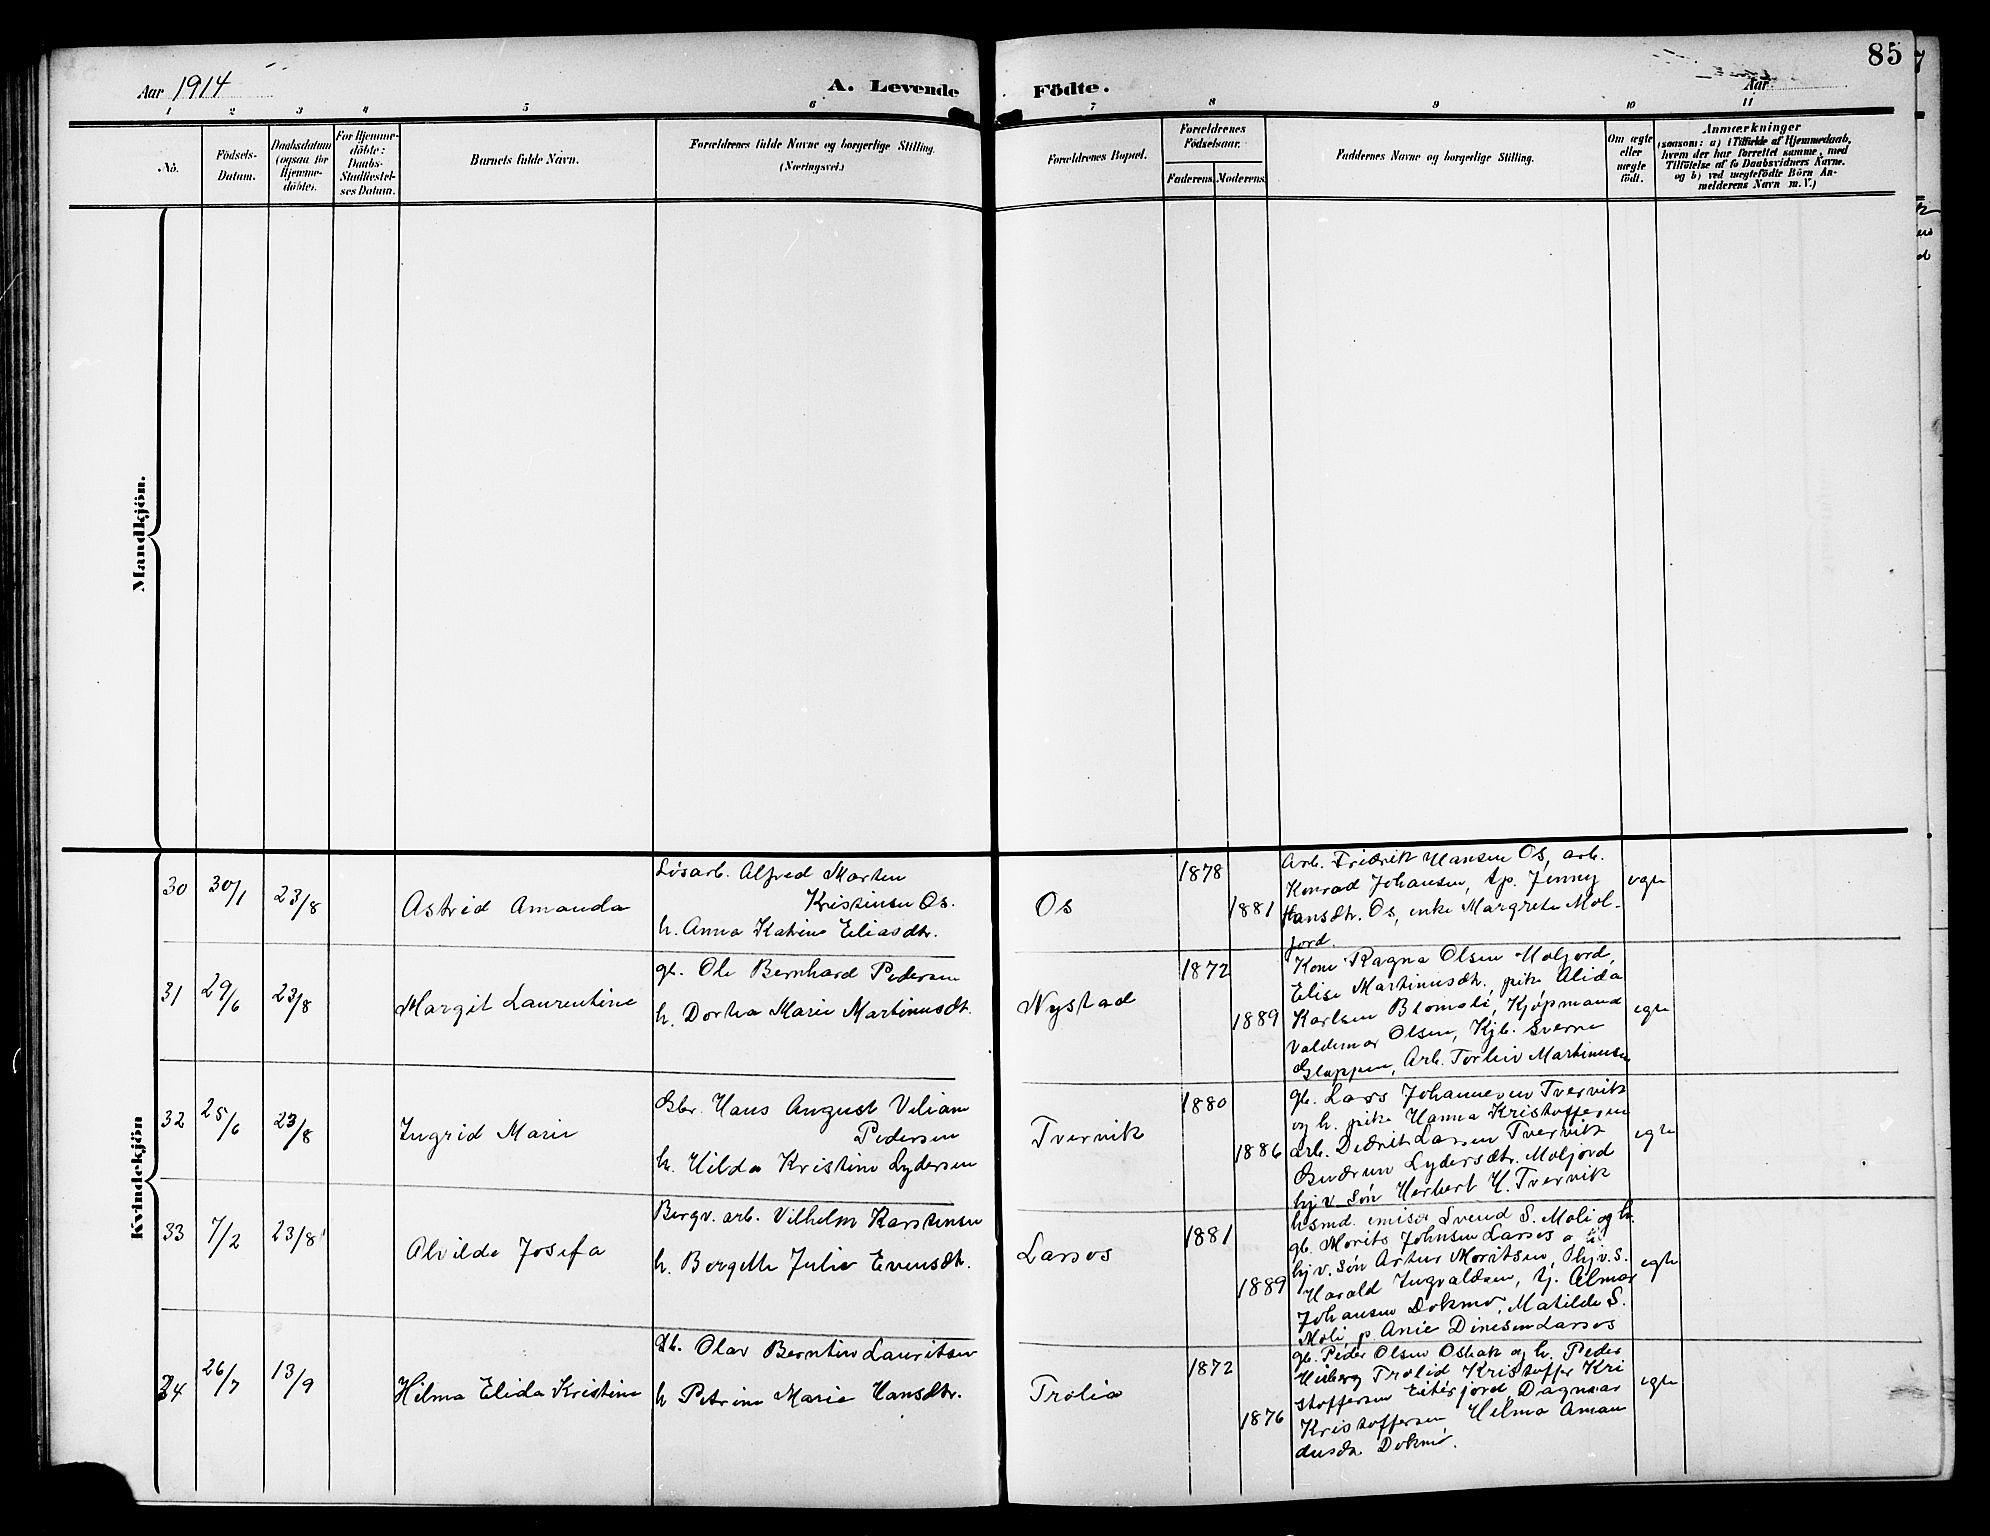 85
Aar 1914
A. Levende Födte.
Aar
1 2 3 4 5 6 7 8 9 10 11
No.
Födsels-
Datum.
Daabsdatum
(ogsaa for
Hjemme-
döbte).
For Hjemme-
döbte:
Daabs-
Stadfæstel-
ses Datum.
Barnets fulde Navn.
Forældrenes fulde Navne og borgerlige Stilling.
(Næringsvei.)
Forældrenes Bopæl.
Forældrenes
Födselsaar.
Faderens. Moderens.
Faddernes Navne og borgerlige Stilling.
Om ægte
eller
uægte
födt.
Anmærkninger
(saasom: a) i Tilfælde af Hjemmedaab,
hvem der har forrettet samme, med
Tilföielse af to Daabsvidners Navne,
og b) ved uægtefödte Börn An-
melderens Navn m. V.)
Mandkjön.
Kvindekjön
30 30/1 23/8 Astrid Amanda
Løsarb. Alfred Marten
Kristinsen Os.
h. Anna Katrine Eliasdtr.
Os
1878
1881
Arb. Fridrik Hansen Os, arb.
Konrad Johansen, tp. Jenny
Hansdtr. Os, enke Margrete Mol-
jord.
egte
31 29/6 23/8 Margit Laurentine
gb. Ole Bernhard Pedersen
h. Dortea Marie Martinusdt.
Nystad
1872
1889
Kone Ragna Olsen Moljord,
Elise Martinusdt. pike Alida
Karlsen Blomoli, Kjøpmand
Valdemar Olsen, Kjb. Sverre
Gloppen, Arb. Torleiv Martinusen
egte
32 25/6 23/8 Ingrid Marie
Gbr. Hans August Viliam
Pedersen
h. Hilda Kristine Lydersen
Tvervik
1880
1886
gb. Lars Johannesen Tvervik
og h. pike Hanna Kristoffersen
arb. Dedrik Larsen Tvervik
Gudrun Lydersdtr. Moljord
hjv. Søn Herbert H. Tvervik
egte
33 7/2 23/8 Alvilde Josefa
Bergv. arb. Vilhelm Karstensen
h. Bergette Julie Evensdt.
Larsos
1881
1889
husmd. Svend S. Moli og h.
gb. Morits Johnsen Larsos
hjv. søn Artur Moritsen, hjv. S.
Harald Ingvaldsen, tj. Almar
Johansen Dokmo, Matilde S.
Moli, p. Anie Dinesen Larsos
egte
34 26/7 13/9 Hilma Elida Kristine
Gb. Olav Berntin Lauritsen
h Petrine Marie Hansdtr.
Trolia
1872
1876
gb. Peder Olsen Osbak og h. Peder
Hiberg Trolid Kristoffer Kri
stoffersen Eiterjord, Dagmar
Kristoffersen Hilma Aman
dusdtr Dokmo.
egte